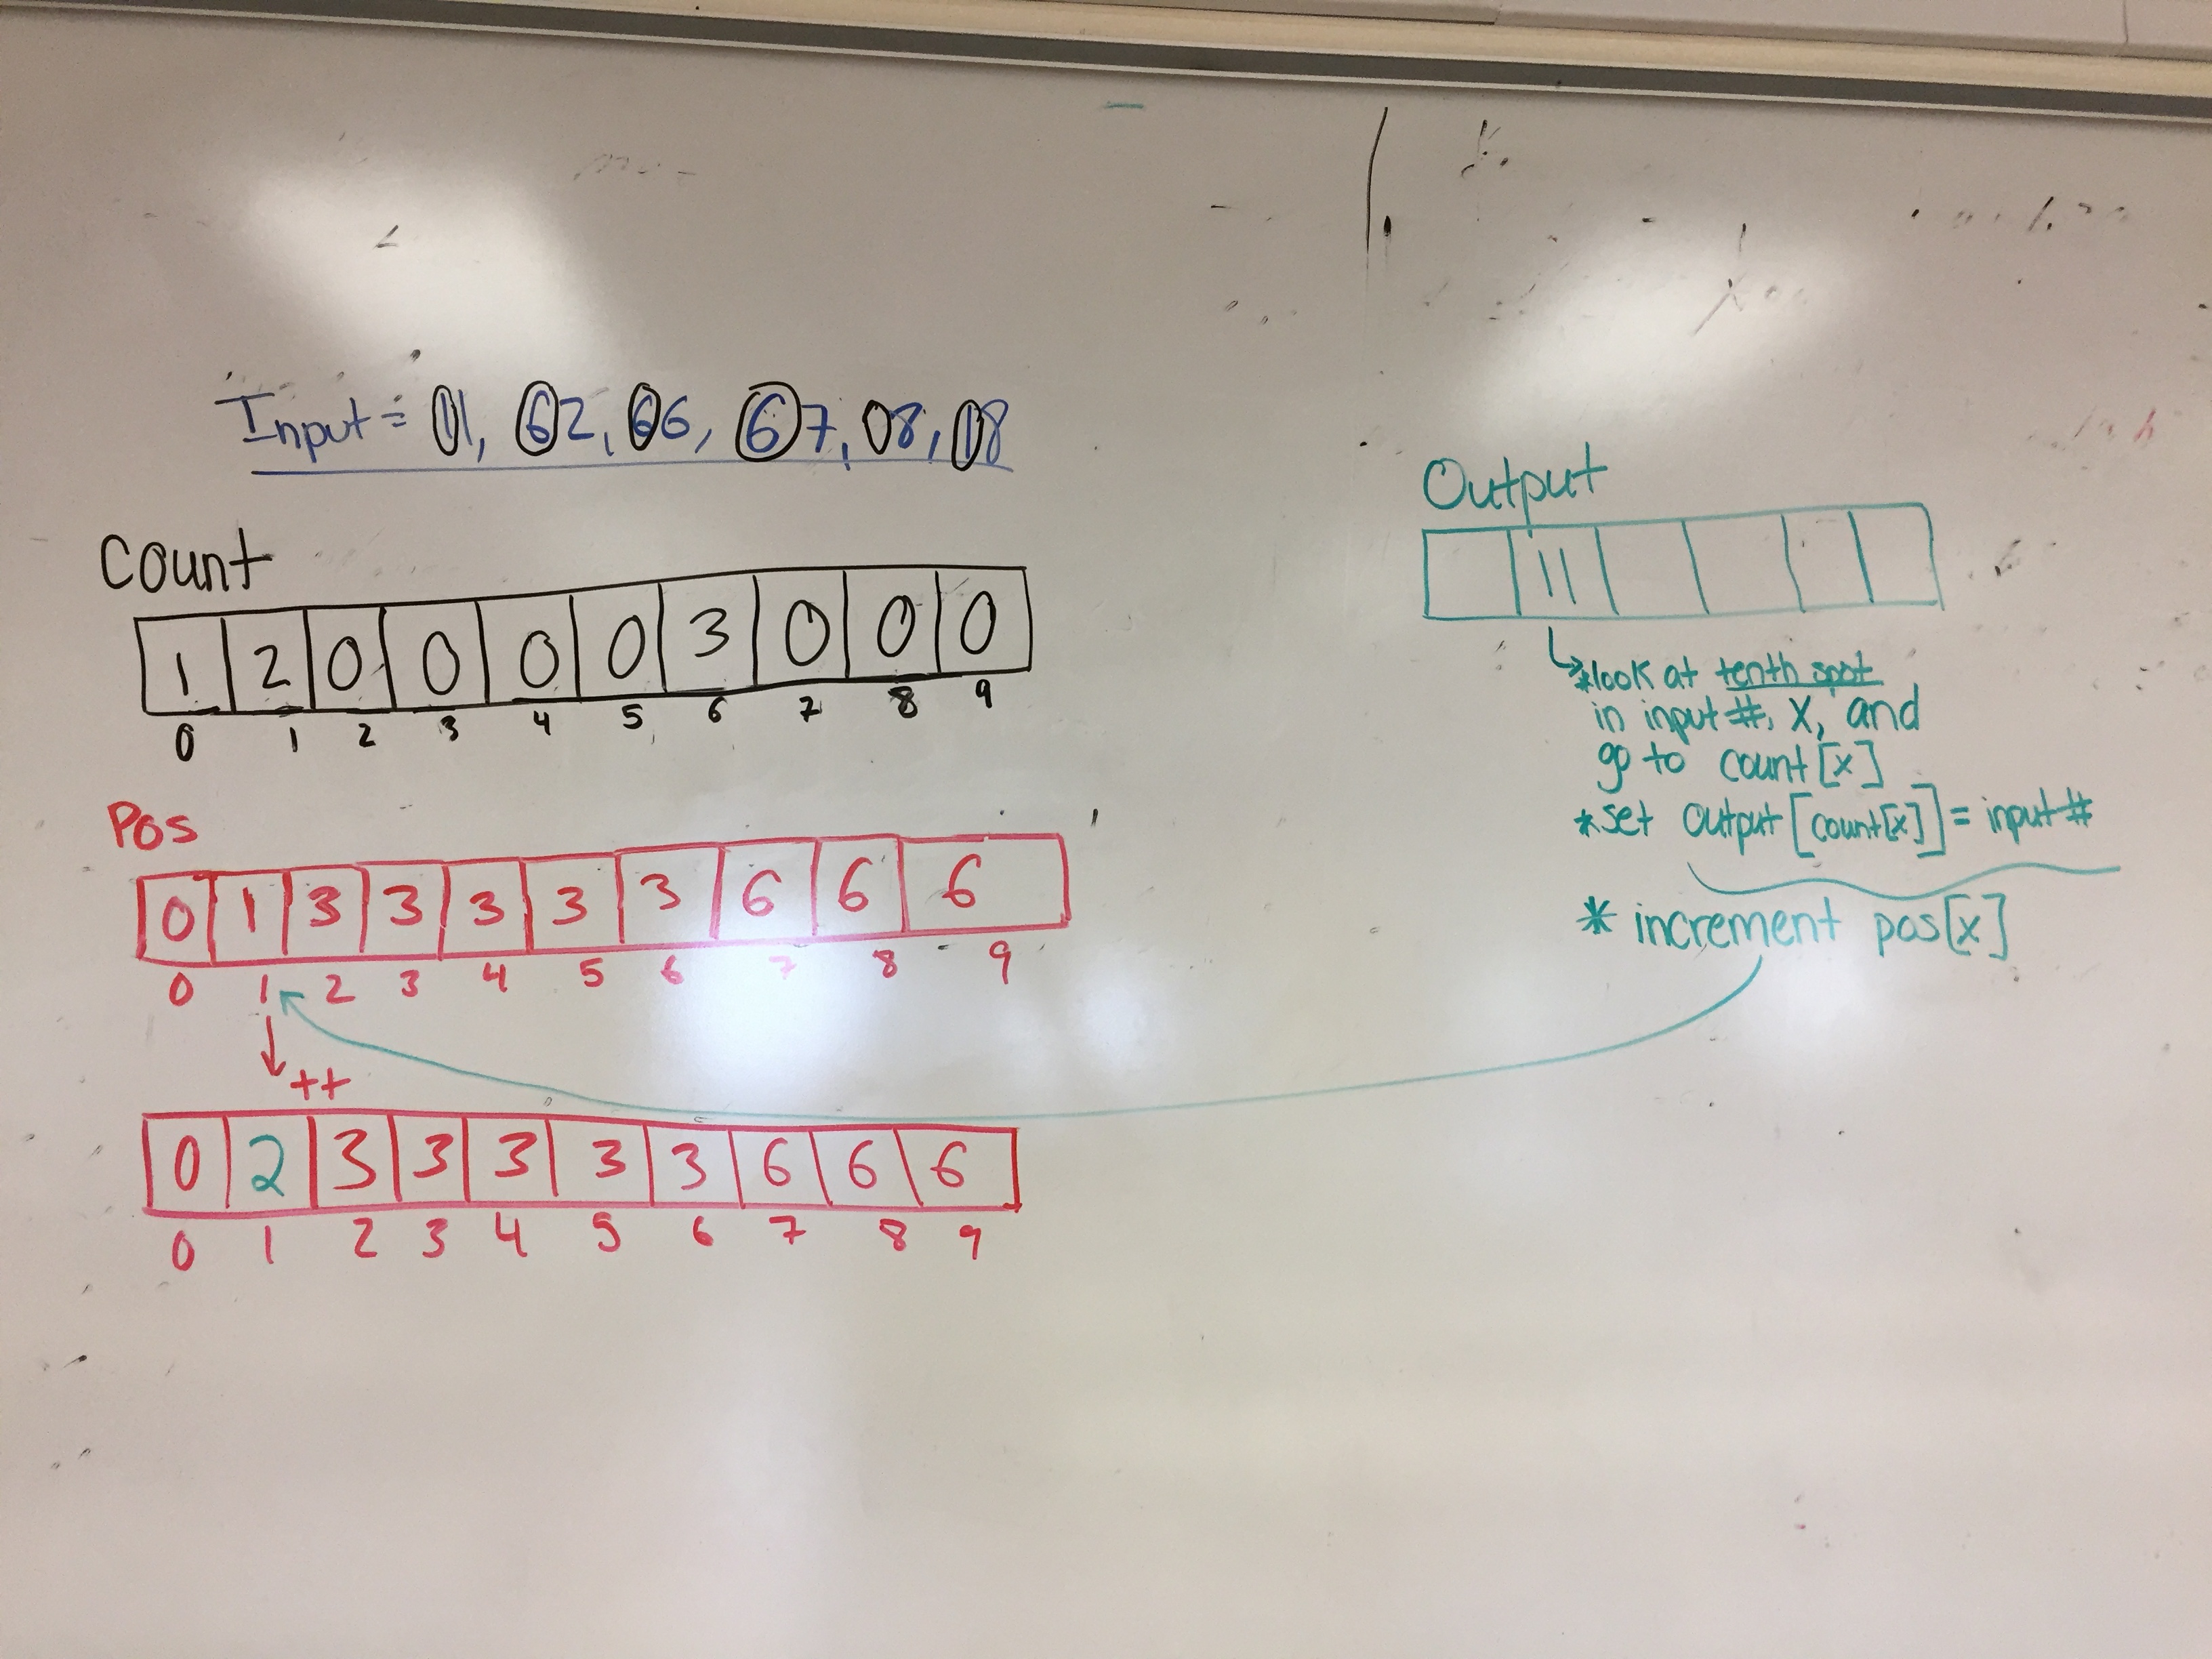 Input = 11, 62, 66, 67, 08, 18
Count
1 2 0 0 0 0 3 0 0 0
0 1 2 3 4 5 6 7 8 9
Pos
0 1 3 3 3 3 3 6 6 6
0 1 2 3 4 5 6 7 8 9
++
0 2 3 3 3 3 3 6 6 6
0 1 2 3 4 5 6 7 8 9
Output
11
*look at tenth spot
in input #, x, and
go to count[x]
*set output[count[x]] = input #
* increment pos[x]